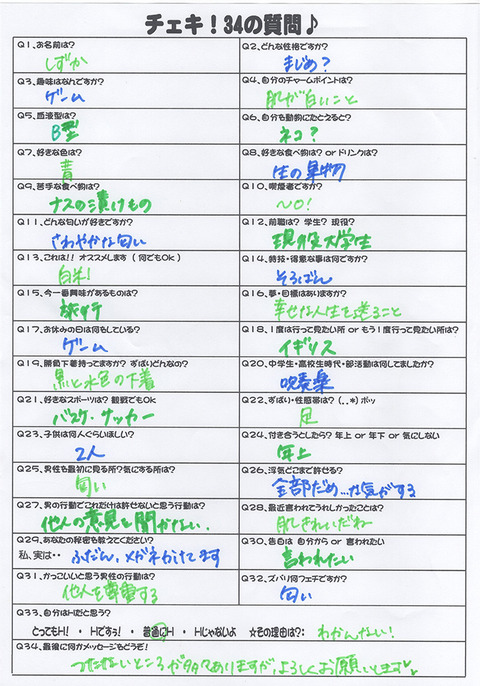 チェキ！34の質問♪
Q1．お名前は？
しずか
Q2．どんな性格ですか？
まじめ？
Q3．趣味はなんですか？
ゲーム
Q4．自分のチャームポイントは？
肌が白いこと
Q5．血液型は？
B型
Q6．自分を動物にたとえると？
ネコ？
Q7．好きな色は？
青
Q8．好きな食べ物は？ or ドリンクは？
生の果物
Q9．苦手な食べ物は？
ナスの漬けもの
Q10．喫煙者ですか？
NO!
Q11．どんな匂いが好きですか？
さわやかな匂い
Q12．前職は？ 学生？ 現役？
現役大学生
Q13．これは！！ オススメします（何でもOk）
白米！
Q14．特技・得意な事は何ですか？
そろばん
Q15．今一番興味があるものは？
旅行
Q16．夢・目標はありますか？
幸せな人生を送ること
Q17．お休みの日は何をしている？
ゲーム
Q18．1度は行って見たい所 or もう1度行って見たい所は？
イギリス
Q19．勝負下着持ってますか？ ずばりどんなの？
黒と水色の下着
Q20．中学生・高校生時代・部活動は何してましたか？
吹奏楽
Q21．好きなスポーツは？ 観戦でもOk
バスケ・サッカー
Q22．ずばり・性感帯は？（．．*）ポッ
足
Q23．子供は何人ぐらいほしい？
2人
Q24．付き合うとしたら？ 年上 or 年下 or 気にしない
年上
Q25．男性を最初に見る所？気にする所は？
匂い
Q26．浮気どこまで許せる？
全部だめ...な気がする
Q27．男の行動でこれだけは許せないと思う行動は？
他人の意見を聞かない．
Q28．最近言われてうれしかったことは？
肌きれいだね
Q29．あなたの秘密を教えてください？
私、実は・・ ふだん、メガネかけてます
Q30．告白は 自分から or 言われたい
言われたい
Q31．かっこいいと思う男性の行動は？
他人を尊重する
Q32．ズバリ何フェチですか？
匂い
Q33．自分はHだと思う？
とってもH！ ・ Hですぅ！ ・ 普通にH ・ Hじゃないよ ☆その理由は？： わかんない！
Q34．最後に何かメッセージをどうぞ！
つたないところが多々ありますが、よろしくお願いします♥